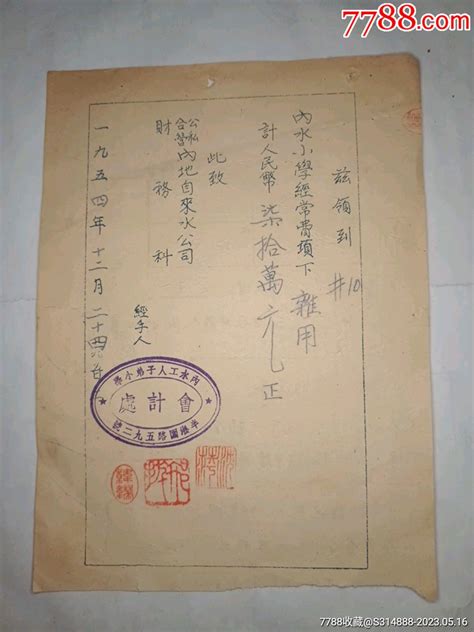 7788.com
茲領到
#10
內水小學經常費項下雜用
計人民幣柒拾萬元正
此致
公私合營內地自來水公司
財務科
經手人
一九五四年十二月二十四日
內水工人子弟小學
會計處
半淞園路五九二號
7788收藏@S314888-2023.05.16